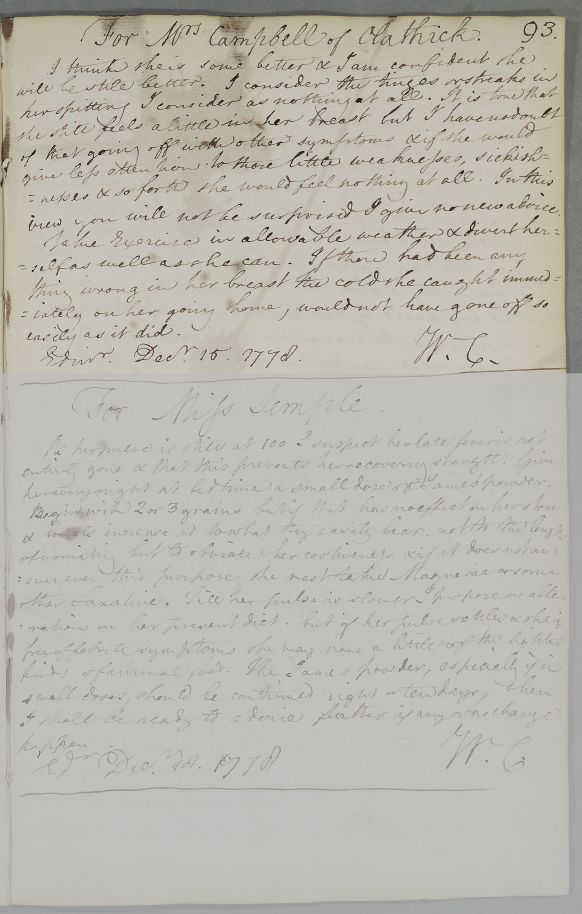 For Mrs Campbell of Clathick. 93.
I think she is some better & I am confident she
will be still better. I consider the tinges or streaks in
her spitting I consider as nothing at all. It is true that
she still feels a little in her breast but I have no doubt
of that going off with other symptoms & if she would
give less attention to those little weaknesses, sickish=
=nesses & so forth she would feel nothing at all. In this
view you will not be surprised I give no new advice.
Take Exercise in allowable weather & divert her=
=self as well as she can. If there had been any
thing wrong in her breast the cold she caught immed=
=iately on her going home, would not have gone off so
easily as it did.
Edinr. Decr. 15. 1778. W. C.
For Miss Temple.
As her pulse is still at 100 I suspect her late fever is not
entirely gone & that this prevents her recovering strength. Give
her every night at bed time a small dose of James's powder.
Begin with 2 or 3 grains but if that has no effect on her stom:
& bowels increase it to what they easily bear, not to the length
of vomiting but to obviate her costiveness & if it does not an:
:swer even this purpose, she must take Magnesia or some
other laxative. Till her pulse is slower I propose no alte:
:ration in her present diet. but if her pulse settles & she is
free of febrile symptoms she may have a little of the lightest
kinds of animal food. The James's powder, especially if in
small doses, should be continued eight or ten days, when
I shall be ready to advise further if any own change
happen
Edr. Decr. 18. 1778 W. C.